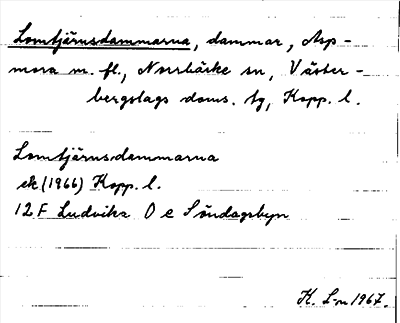 Lomtjärnsdammarna, dammar, Asp-
mora m. fl., Norrbärke sn, Väster-
bergslags doms. tg, Kopp. l.
Lomtjärnsdammarna
ek (1966) Kopp. l.
12 F Ludvika O e Söndagsbyn
K. L-n 1967.